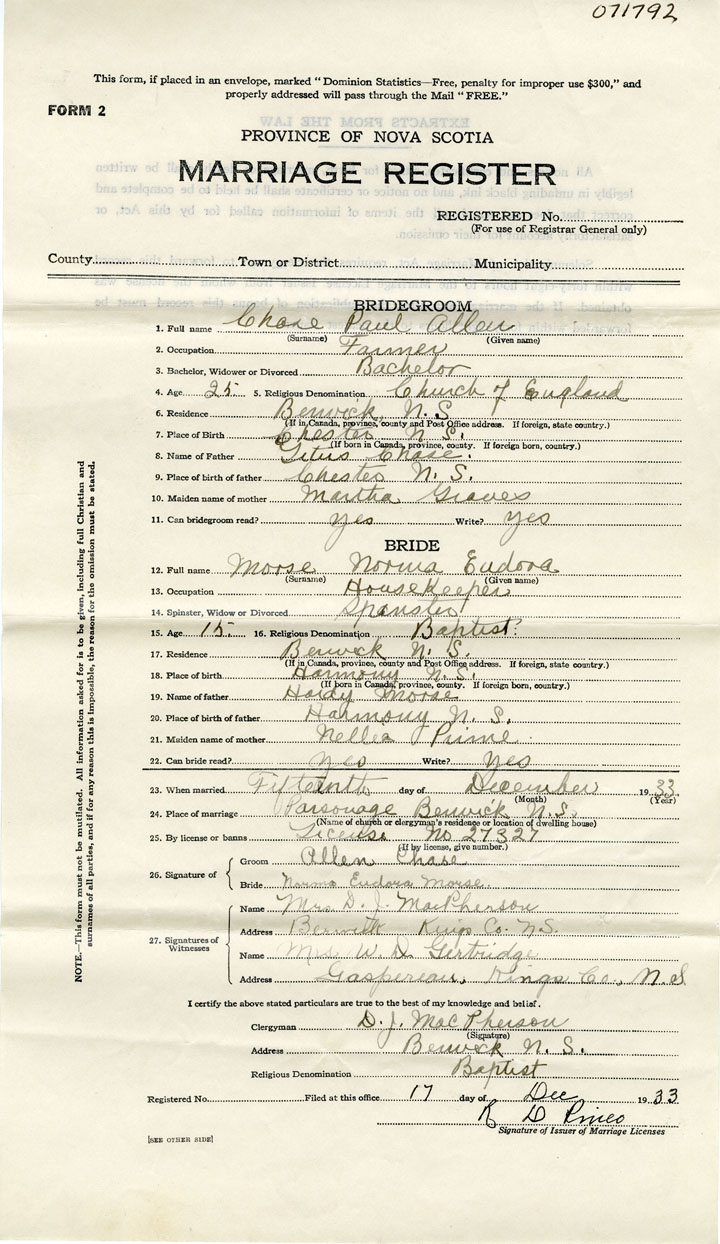 071792
This form, if placed in an envelope, marked "Dominion Statistics—Free, penalty for improper use $300," and
properly addressed will pass through the Mail "FREE."
FORM 2
PROVINCE OF NOVA SCOTIA
MARRIAGE REGISTER
REGISTERED No.
(For use of Registrar General only)
County Town or District Municipality
BRIDEGROOM
1. Full name Chase Paul Allen
(Surname) (Given name)
2. Occupation Farmer
3. Bachelor, Widower or Divorced Bachelor
4. Age 25 5. Religious Denomination Church of England
6. Residence Berwick, N. S.
(If in Canada, province, county and Post Office address. If foreign, state country.)
7. Place of Birth Chester N. S.
(If born in Canada, province, county. If foreign born, country.)
8. Name of Father Titus Chase.
9. Place of birth of father Chester N. S.
10. Maiden name of mother Martha Graves
11. Can bridegroom read? yes Write? yes
BRIDE
12. Full name Morse Norma Eudora
(Surname) (Given name)
13. Occupation Housekeeper
14. Spinster, Widow or Divorced Spinster
15. Age 15. 16. Religious Denomination Baptist.
17. Residence Berwick N. S.
(If in Canada, province, county and Post Office address. If foreign, state country.)
18. Place of birth Harmony N. S.
(If born in Canada, province, county. If foreign born, country.)
19. Name of father Hardy Morse
20. Place of birth of father Harmony N. S.
21. Maiden name of mother Nellie
22. Can bride read? yes Write? yes
23. When married Fifteenth day of December 1933
(Month) (Year)
24. Place of marriage Parsonage Berwick N. S.
(Name of church or clergyman's residence or location of dwelling house)
25. By license or banns License No 27327
(If by license, give number.)
26. Signature of
Groom Allen Chase
Bride Norma Eudora Morse
27. Signatures of Witnesses
Name Mrs D. J. MacPherson
Address Berwick Kings Co. N.S.
Name Mrs. W. D.
Address Gaspereau, Kings Co., N.S
I certify the above stated particulars are true to the best of my knowledge and belief.
Clergyman D. J. MacPherson
(Signature)
Address Berwick N. S.
Religious Denomination Baptist
Registered No. Filed at this office 17 day of Dec 1933
R D Pineo
Signature of Issuer of Marriage Licenses
[SEE OTHER SIDE]
NOTE.—This form must not be mutilated. All information asked for is to be given, including full Christian and
surnames of all parties, and if for any reason this is impossible, the reason for the omission must be stated.